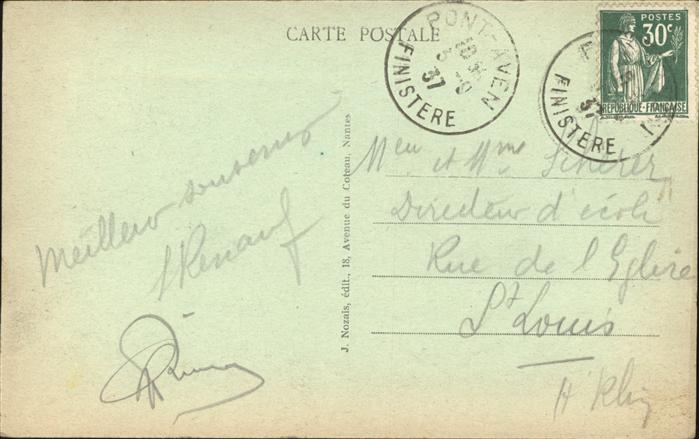 CARTE POSTALE
PONT-AVEN
37
FINISTERE
POSTES
30c
REPUBLIQUE-FRANÇAISE
37
FINISTERE
Meilleur souvenir
J. Nozais, édit., 18, Avenue du Coteau, Nantes
et Mme Scherer
Directeur d'école
Rue de l'Eglise
St Louis